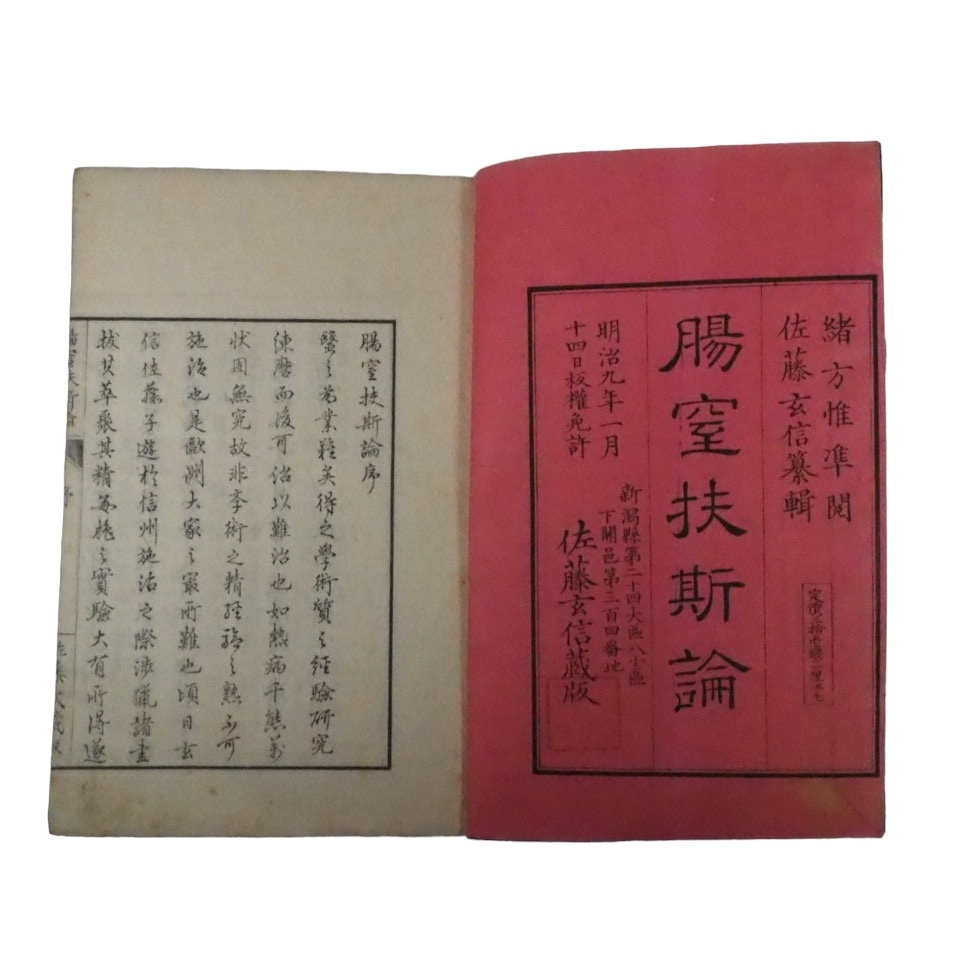 緒方惟準閲
佐藤玄信纂輯
腸窒扶斯論
明治九年一月
十四日板權免許
新潟縣第二十四大區八小區
下關邑第三百四番地
佐藤玄信蔵版
腸窒扶斯論序
醫之為業難矣得之學術質之經驗研究
練磨而後可治以難治也如熱病千態萬
状固無究故非学術之精經驗之熟不可
施治也是歐洲大家之最所難也頃日玄
信佐藤子遊於信州施治之際渉猟諸書
抜其萃聚其精毎施之實驗大有所得遂